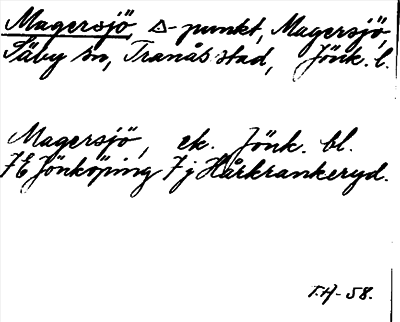 Magersjö △-punkt, Magersjö,
Säby sn, Tranås stad, Jönk. l.
Magersjö, ek. Jönk. bl.
7E Jönköping 7j Hårkrankeryd.
T.H-58.